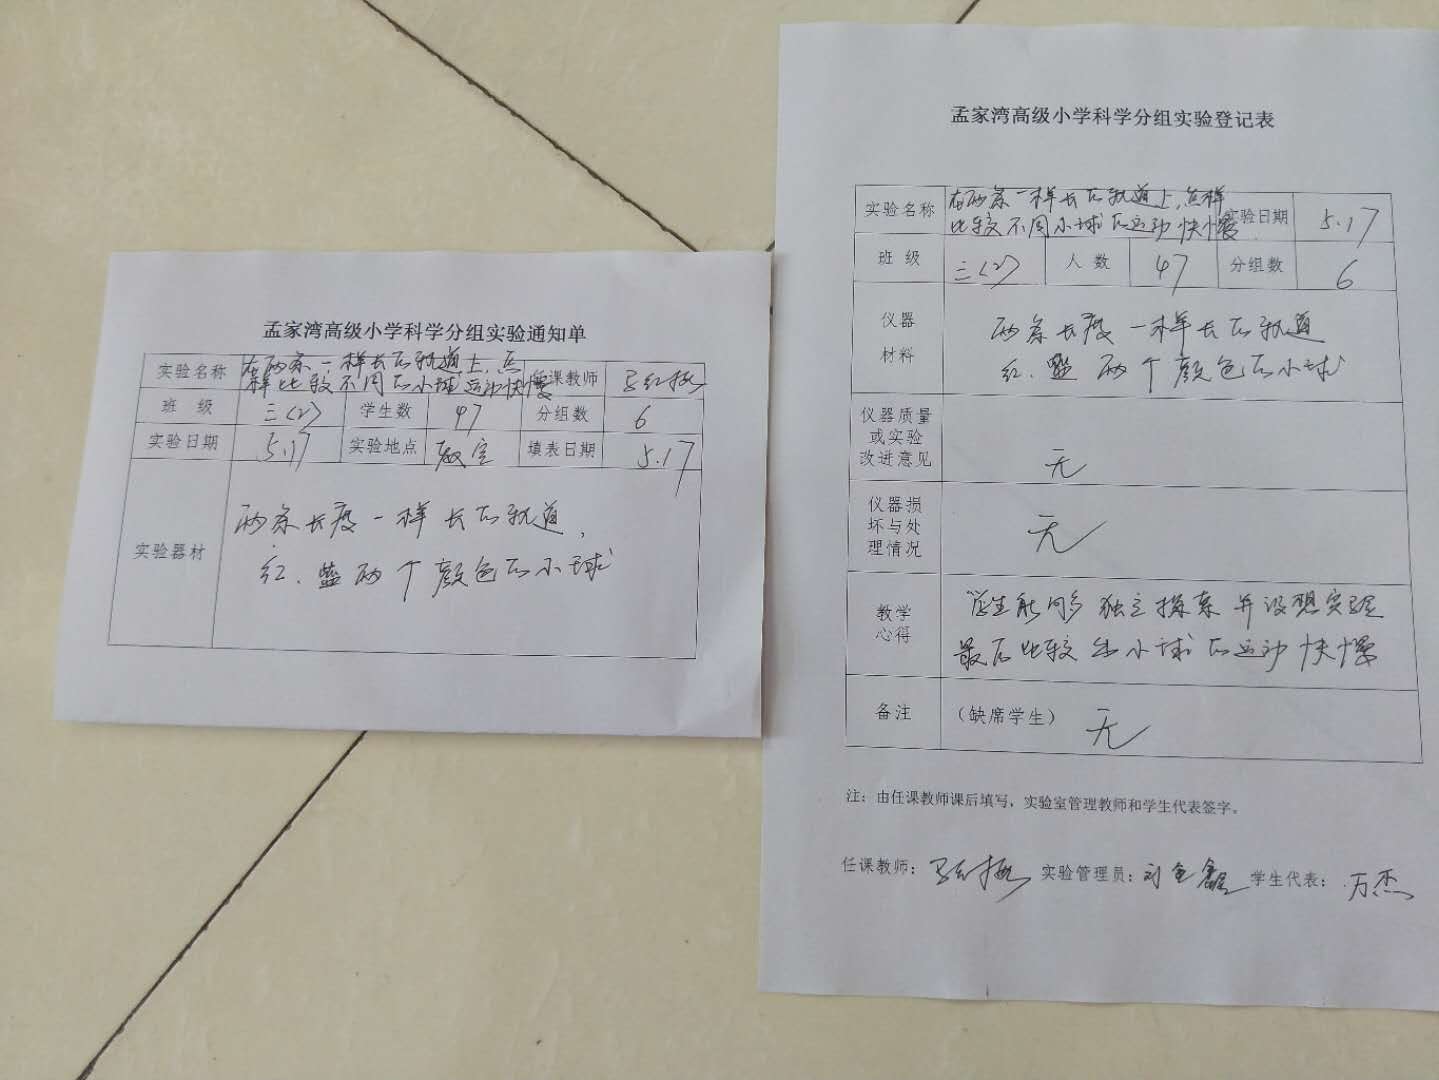 孟家湾高级小学科学分组实验通知单
实验名称 在两条一样长的轨道上,怎样比较不同的小球运动快慢 任课教师
班 级 三(2) 学生数 47 分组数 6
实验日期 5.17 实验地点 教室 填表日期 5.17
实验器材
两条长度一样长的轨道,
红、蓝两个颜色的小球
孟家湾高级小学科学分组实验登记表
实验名称 在两条一样长的轨道上,怎样比较不同小球的运动快慢 实验日期 5.17
班 级 三(2) 人 数 47 分组数 6
仪器
材料
两条长度一样长的轨道
红、蓝两个颜色的小球
仪器质量
或实验
改进意见
无
仪器损
坏与处
理情况
无
教学
心得
学生能够独立探索并设想实验
最后比较出小球的运动快慢
备注 (缺席学生) 无
注:由任课教师课后填写,实验室管理教师和学生代表签字。
任课教师: 实验管理员:刘金鑫 学生代表:万杰